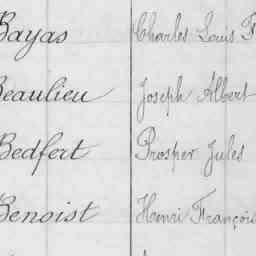 Bayas Charles Louis F
Beaulieu Joseph Albert
Bedfert Prosper Jules
Benoist Henri François